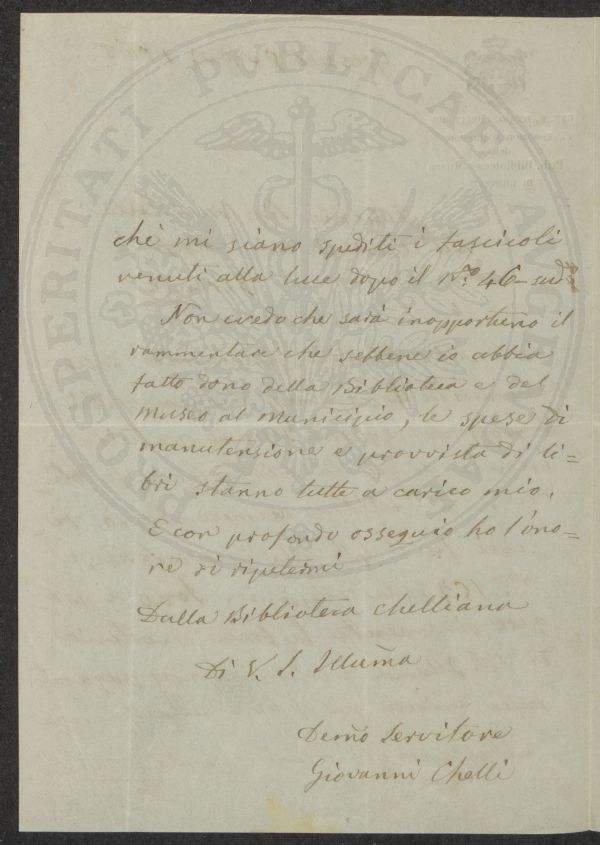 PROSPERITATI PUBLICAE AUGENDAE
che mi siano spediti i fascicoli
venuti alla luce dopo il N.º 46
Non credo che sarà inopportuno il
rammentare che sebbene io abbia
fatto dono della Biblioteca e del
Museo al Municipio, le spese di
manutensione e provvista di li=
bri stanno tutte a carico mio.
E con profondo ossequio ho l'ono=
re di ripetermi
Dalla Biblioteca Chelliana
Di V. S. Illum̃a
Dem̃o Servitore
Giovanni Chelli